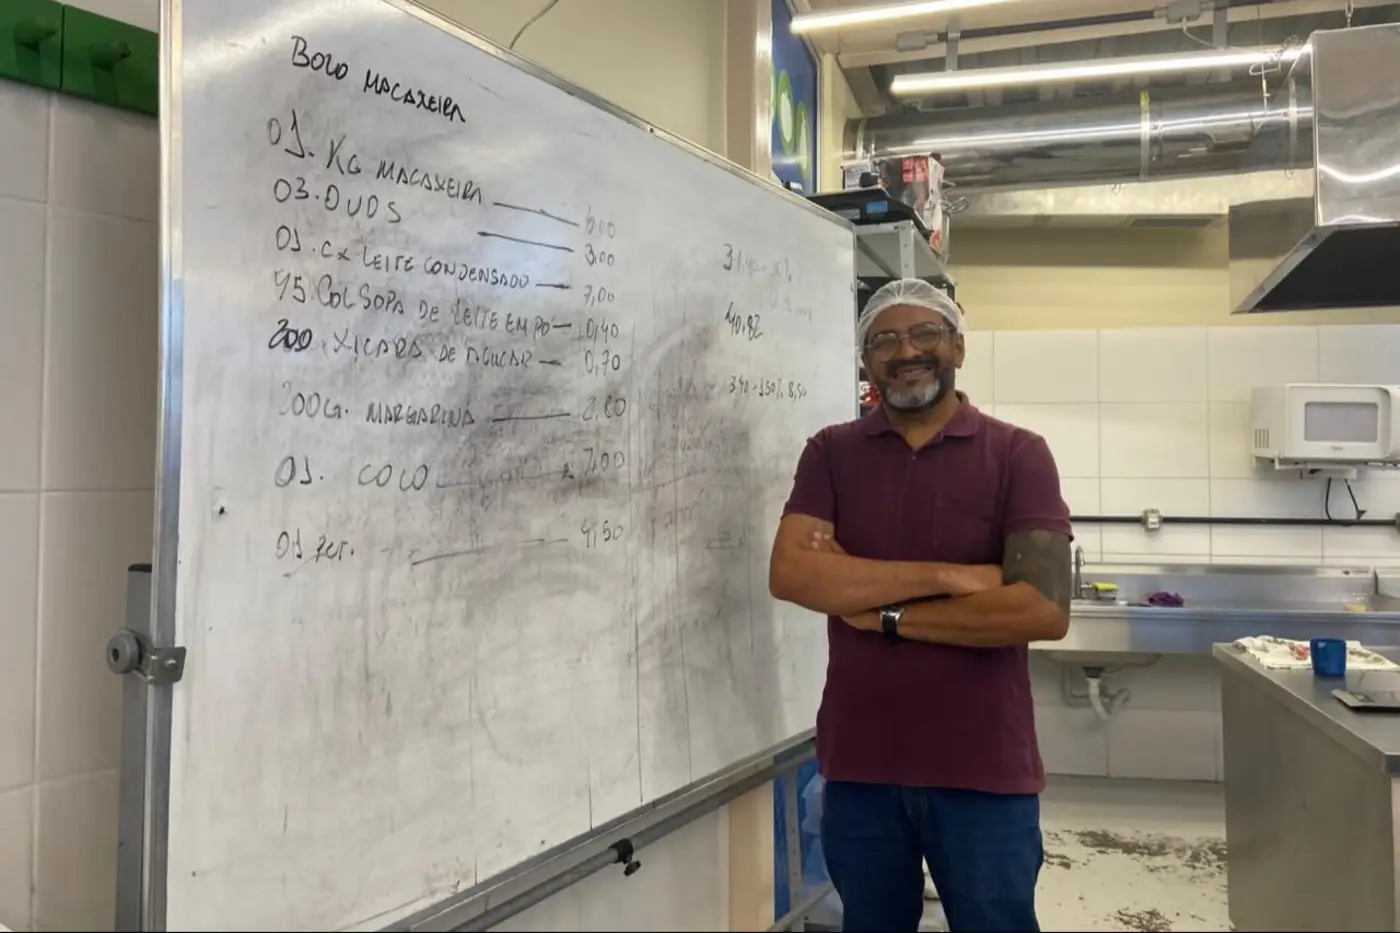 BOLO MACAXEIRA
01. KG MACAXEIRA 6,00
03. OVOS 3,00
01. CX LEITE CONDENSADO 7,00
COL SOPA DE LEITE EM PÓ 0,40
200 XICARA DE AÇUCAR 0,70
200G. MARGARINA 2,80
01. COCO 7,00
01 4,50
40,82
8,50